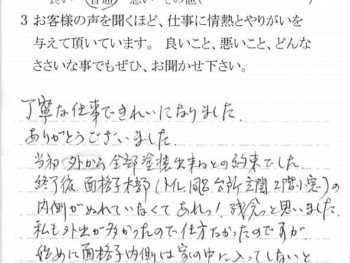 良い 普通 悪い その他(
3 お客様の声を聞くほど、仕事に情熱とやりがいを
与えて頂いています。 良いこと、悪いこと、どんな
ささいな事でもぜひ、お聞かせ下さい。
丁寧な仕事できれいになりました。
ありがとうございました。
当初 外から全部塗装出来るとの約束でした。
終了後 面格子木部(トイレ、風呂、台所、玄関、2階小窓)の
内側がぬれていなくてあれっ!残念っと思いました。
私も外出が多かったので仕方なかったのですが
始めに面格子内側は家の中に入ってしないと